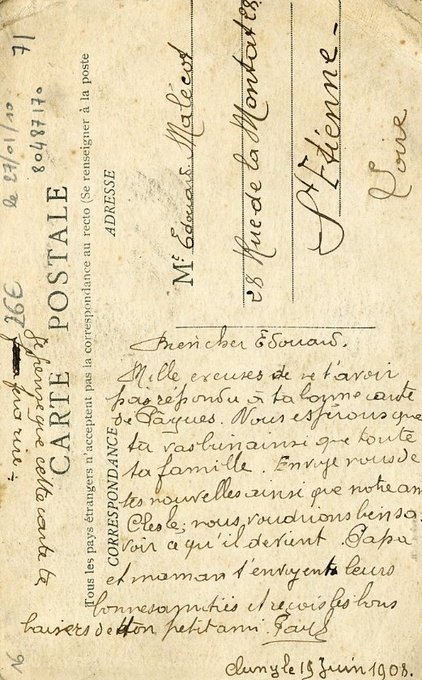 CARTE POSTALE
Tous les pays étrangers n'acceptent pas la correspondance au recto (Se renseigner à la poste
CORRESPONDANCE
ADRESSE
Mr Edouard Malécot
28 Rue de la Montat 28
St Etienne
Loire
Bien cher Edouard.
Mille excuses de ne t'avoir
pas répondu à ta bonne carte
de Pâques. Nous espérons que
tu vas bien ainsi que toute
ta famille. Envoye nous de
tes nouvelles ainsi que notre am
nous voudrions bien sa
voir ce qu'il devient. Papa
et maman t'envoyent leurs
bonnes amitiés et reçois les bons
baisers de ton petit ami. Paul
Cluny le 19 Juin 1908.
Je pense que cette carte te
fera rire
26€
80487170
01/10/72